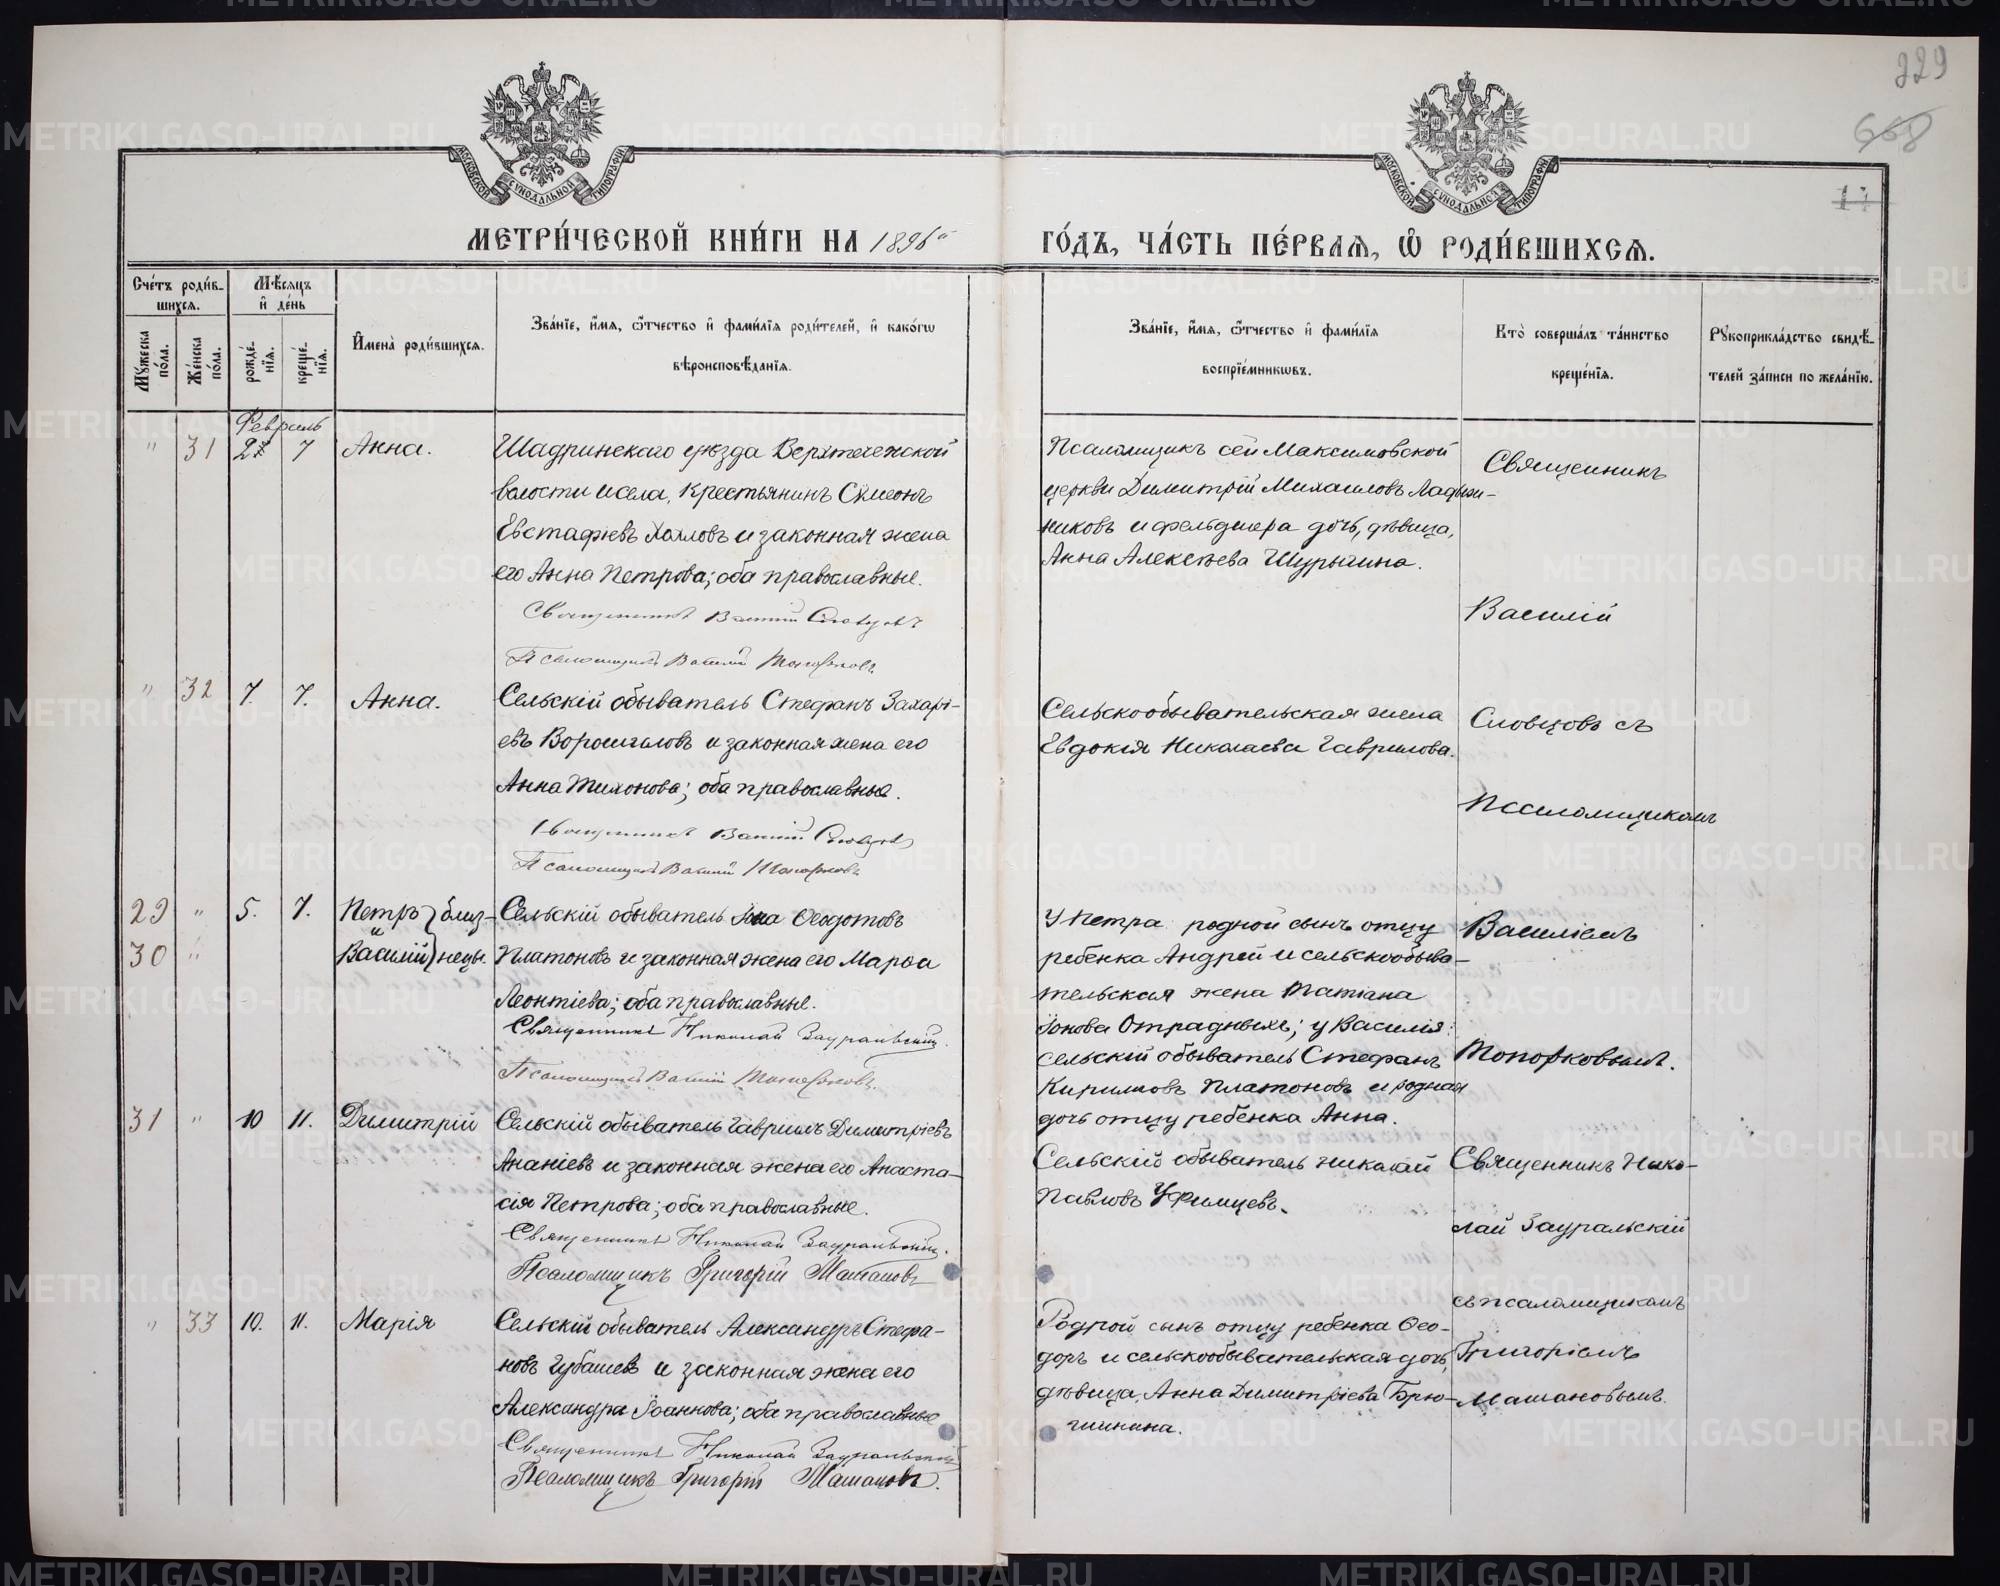 229
668
17
МОСКОВСКОЙ СѴНОДАЛЬНОЙ ТИПОГРАФІИ
МОСКОВСКОЙ СѴНОДАЛЬНОЙ ТИПОГРАФІИ
МЕТРИ́ЧЕСКОЙ КНИ́ГИ НА 1896й ГО́ДЪ, ЧА́СТЬ ПЕ́РВАѦ, Ѡ҆ РОДИ́ВШИХСѦ.
Сче́тъ роди́в-
шихсѧ.
Мꙋжеска по́ла.
Же́нска по́ла.
Мѣ́сѧцъ
и҆ де́нь
рожде́-
нїѧ.
креще́-
нїѧ.
И҆мена̀ роди́вшихсѧ.
Зва́нїе, и҆́мѧ, ѻ҆́тчество и҆ фами́лїѧ роди́телей, и҆ како́гѡ
вѣроисповѣ́данїѧ.
Зва́нїе, и҆́мѧ, ѻ҆́тчество и҆ фами́лїѧ
воспрїе́мникѡвъ.
Кто̀ соверша́лъ та́инство
креще́нїѧ.
Рꙋкоприкла́дство свидѣ́-
телей за́писи по жела́нїю.
Февраль
" 31 2 7 Анна.
Шадринскаго уѣзда Верхтеченской
волости и села, крестьянинъ Сѵмеонъ
Евстафіевъ Хохловъ и законная жена
его Анна Петрова; оба православные.
Священникъ Василій Словцовъ
Псаломщикъ Василій Топорковъ
Псаломщикъ сей Максимовской
церкви Димитрій Михаиловъ Лады-
никовъ и фельдшера дочь, дѣвица,
Анна Алексѣева Шурыгина.
Священникъ
Василій
Словцовъ съ
псаломщикомъ
Василіемъ
Топорковымъ.
" 32 7. 7. Анна.
Сельскій обыватель Стефанъ Захарі-
евъ Ворошиловъ и законная жена его
Анна Тихонова; оба православные.
Священникъ Василій Словцовъ
Псаломщикъ Василій Топорковъ
Сельскообывательская жена
Евдокія Николаева Гаврилова.
29 " 5. 7. Петръ } близ-
и
30 " Василій } нецы.
Сельскій обыватель Іона Ѳеодотовъ
Платоновъ и законная жена его Марѳа
Леонтіева; оба православные.
Священникъ Николай Зауральскій.
Псаломщикъ Василій Топорковъ.
У Петра родной сынъ отцу
ребенка Андрей и сельскообыва-
тельская жена Татіана
Іонова Отрадныхъ; у Василія:
сельскій обыватель Стефанъ
Кирилловъ Платоновъ и родная
дочь отцу ребенка Анна.
31 " 10 11. Димитрій
Сельскій обыватель Гавріилъ Димитріевъ
Ананіевъ и законная жена его Анаста-
сія Петрова; оба православные.
Священникъ Николай Зауральскій.
Псаломщикъ Григорій Машановъ
Сельскій обыватель Николай
Павловъ Уфимцевъ.
Священникъ Нико-
лай Зауральскій
съ псаломщикомъ
Григоріемъ
Машановымъ.
" 33 10. 11. Марія
Сельскій обыватель Александръ Стефа-
новъ Губашевъ и законная жена его
Александра Іоаннова; оба православные
Священникъ Николай Зауральскій
Псаломщикъ Григорій Машановъ.
Родной сынъ отцу ребенка Ѳео-
доръ и сельскообывательская дочь,
дѣвица, Анна Димитріева Брю-
шинина.
METRIKI.GASO-URAL.RU